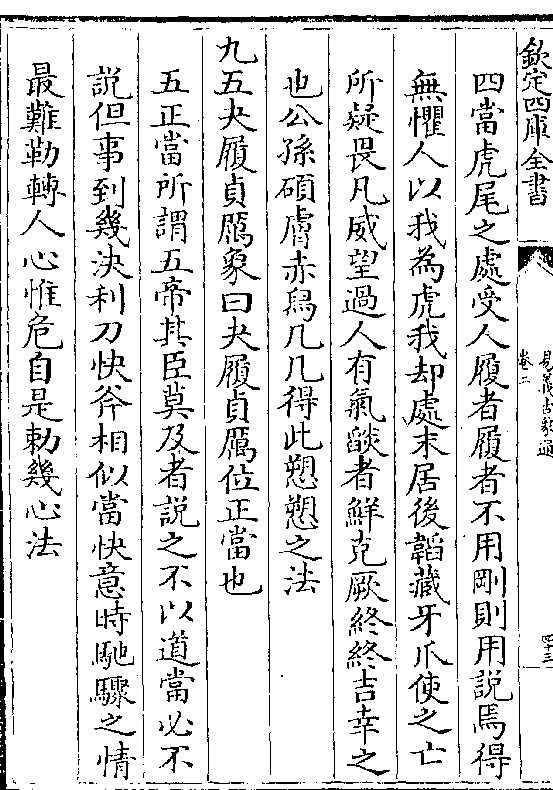 欽定四庫全書
卷二
四十三
四當虎尾之處受人履者履者不用剛則用説焉得
無懼人以我為虎我却處末居後韜藏牙爪使之亡
所疑畏凡威望過人有氣燄者鮮克厥終終吉幸之
也公孫碩膚赤舄几几得此愬愬之法
九五夬履貞厲象曰夬履貞厲位正當也
五正當所謂五帝其臣莫及者説之不以道當必不
説但事到幾決利刀快斧相似當快意時馳驟之情
最難勒轉人心惟危自是勅幾心法